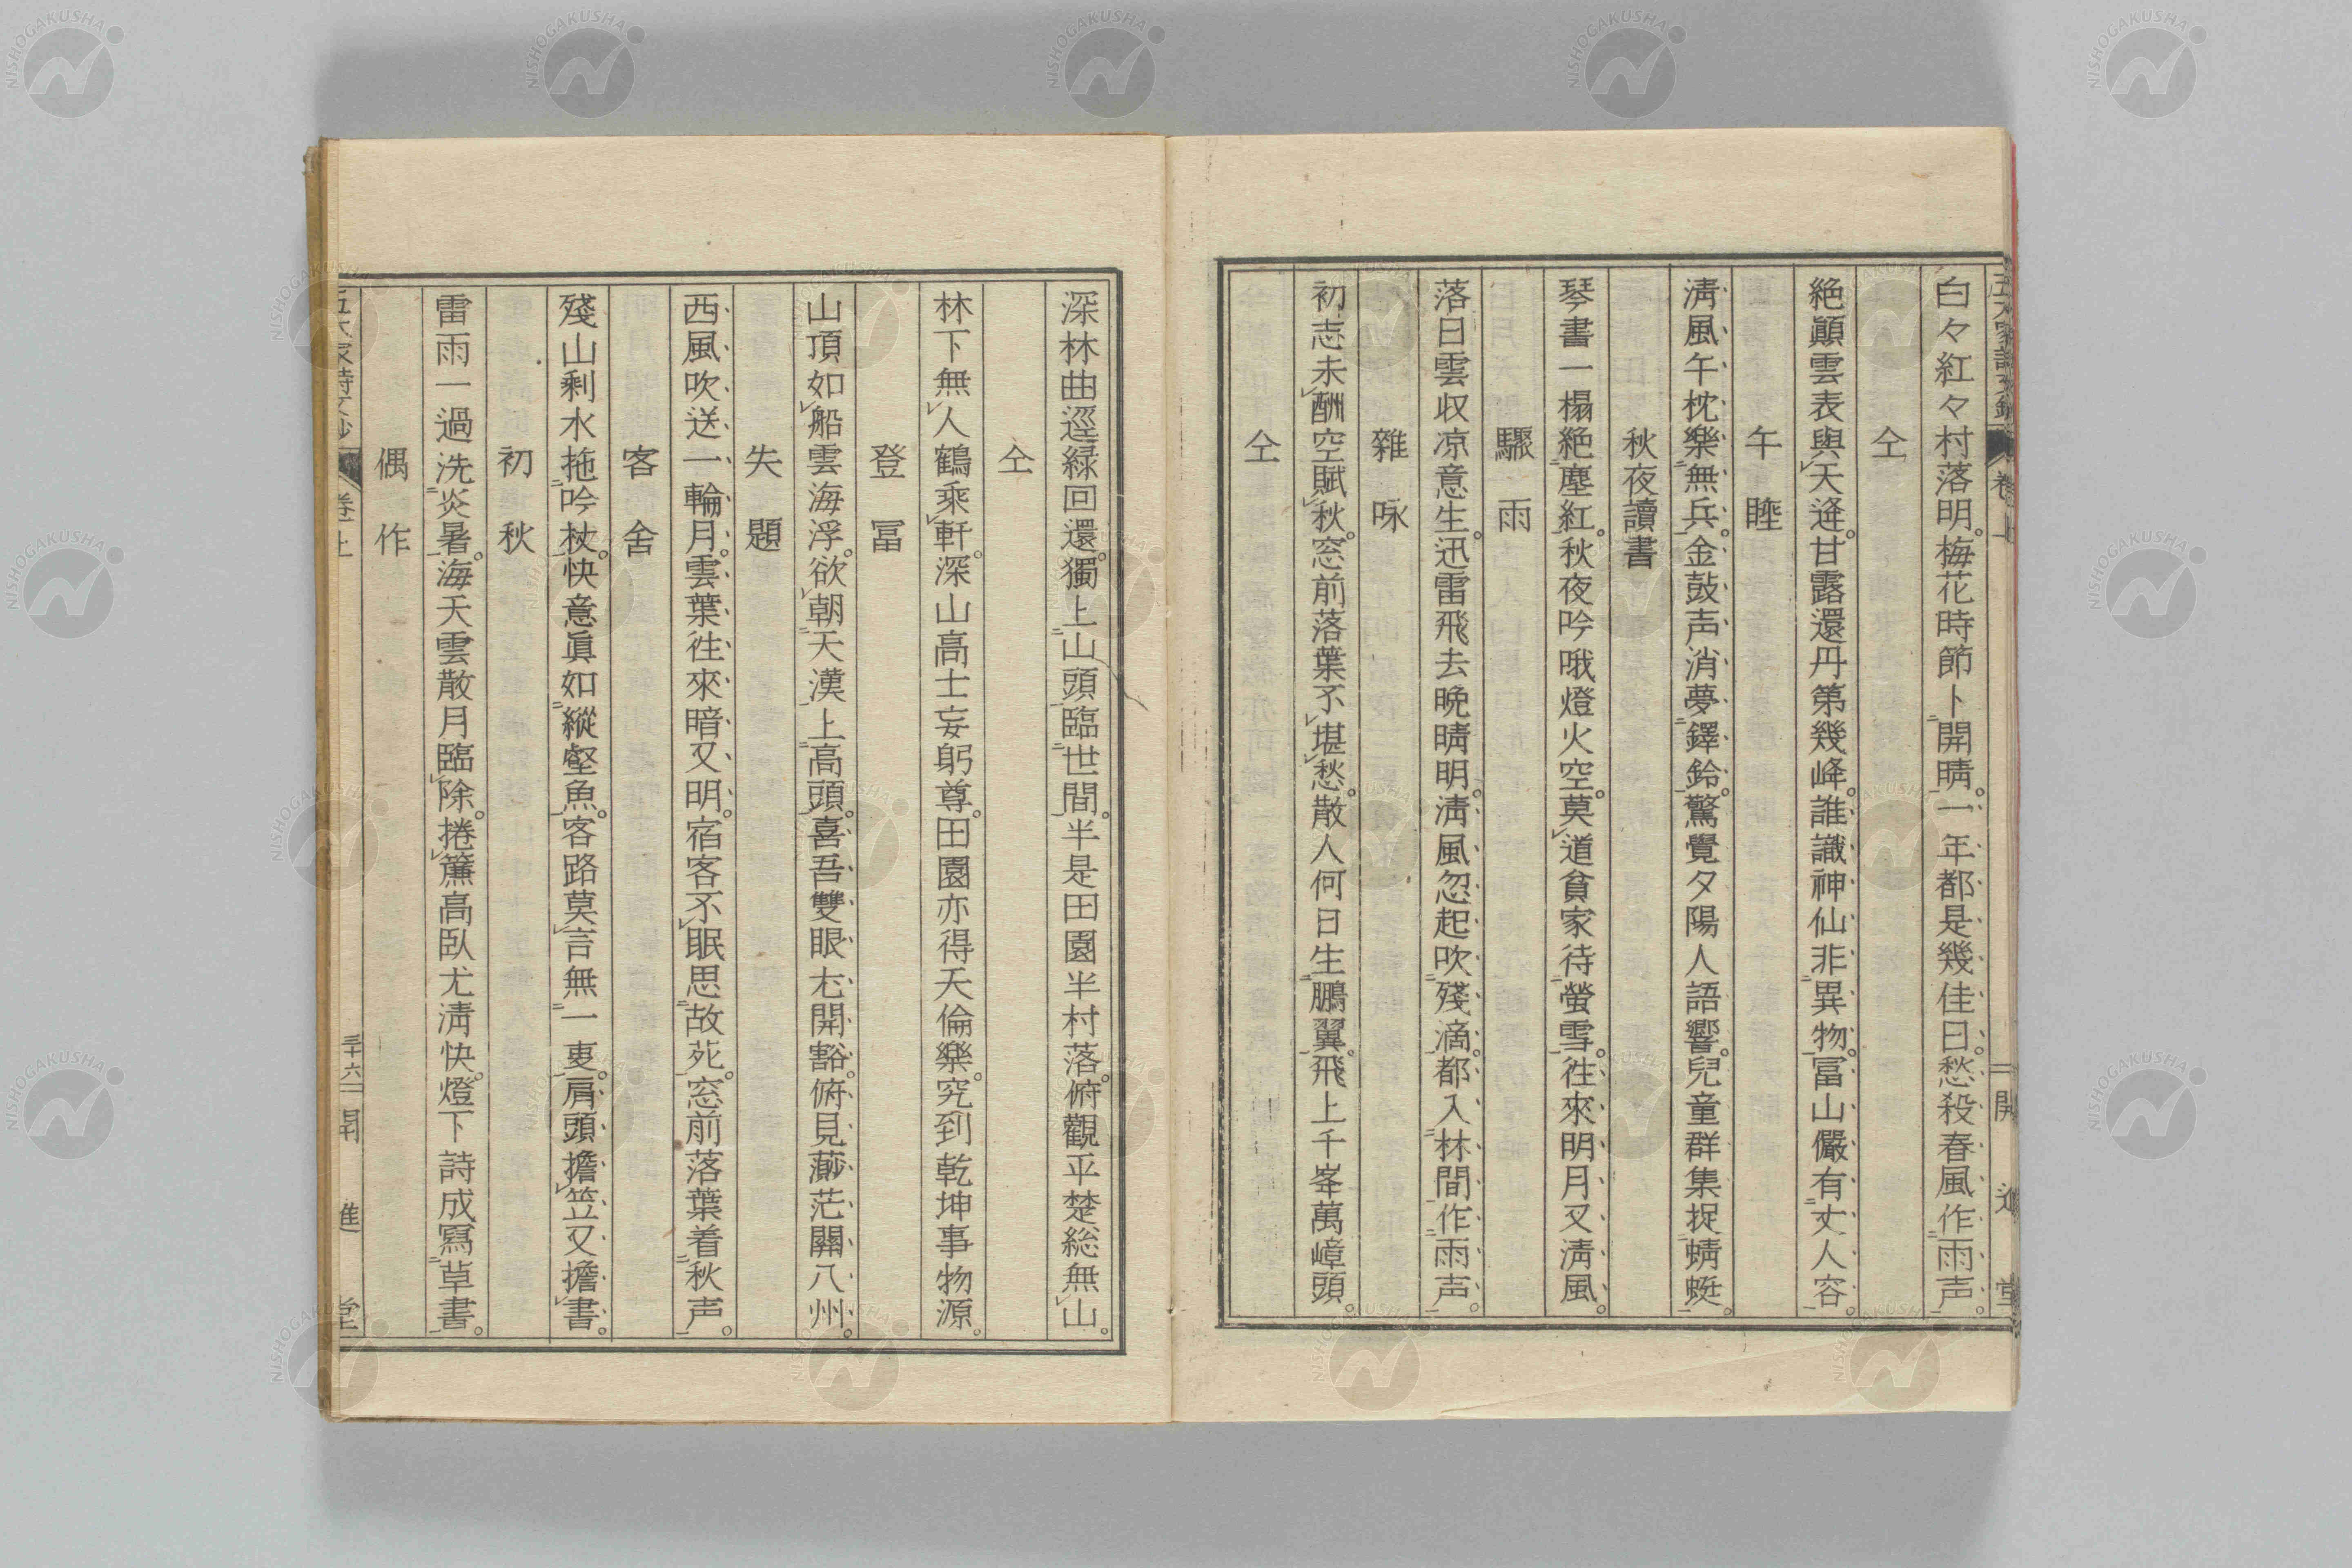 白々紅々村落明。梅花時節卜開晴。一年都是幾佳日。愁殺春風作雨声。
仝
絶顚雲表與天逢。甘露還丹第幾峰。誰識神仙非異物。冨山儼有丈人容。
午睡
淸風午枕樂無兵。金鼓声消夢鐸鈴。驚覺夕陽人語響。兒童群集捉蜻蜓。
秋夜讀書
琴書一榻絶塵紅。秋夜吟哦燈火空。莫道貧家待螢雪。徃來明月又淸風。
驟雨
落日雲収凉意生。迅雷飛去晩晴明。淸風忽起吹殘滴。都入林間作雨声。
雜咏
初志未酬空賦秋。窓前落葉不堪愁。散人何日生鵬翼。飛上千峯萬嶂頭。
仝
深林曲逕緑回還。獨上山頭臨世間。半是田園半村落。俯觀平楚総無山。
仝
林下無人鶴乘軒。深山高士妄躬尊。田園亦得天倫樂。究到乾坤事物源。
登冨
山頂如船雲海浮。欲朝天漢上高頭。喜吾雙眼尤開豁。俯見渺茫關八州。
失題
西風吹送一輪月。雲葉徃來暗又明。宿客不眠思故苑。窓前落葉着秋声。
客舍
殘山剩水拖吟杖。快意眞如縱壑魚。客路莫言無一事。肩頭擔笠又擔書。
初秋
雷雨一過洗炎暑。海天雲散月臨除。捲簾高臥尤淸快。燈下詩成寫草書。
偶作
卷上
三十六
開進堂
NISHOGAKUSHA